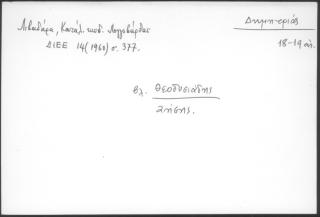 Δημητριάς
Λιβαδάρα, Κατάλ. κωδ. Λογγοβάρδας
ΔΙΕΕ 14 (1960) σ. 377.
18-19 αι.
βλ. Θεοδοσιάδης
Ζήσης.